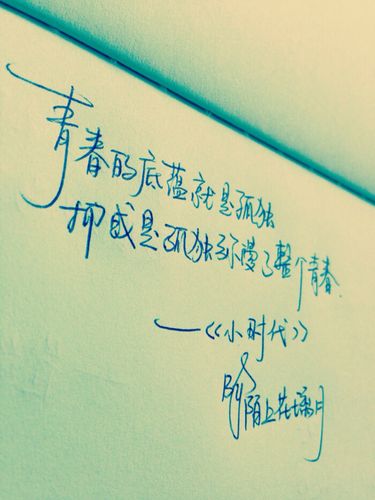 青春的底蕴就是孤独
抑或是孤独弥漫了整个青春.
——《小时代》
By 陌上花璃月